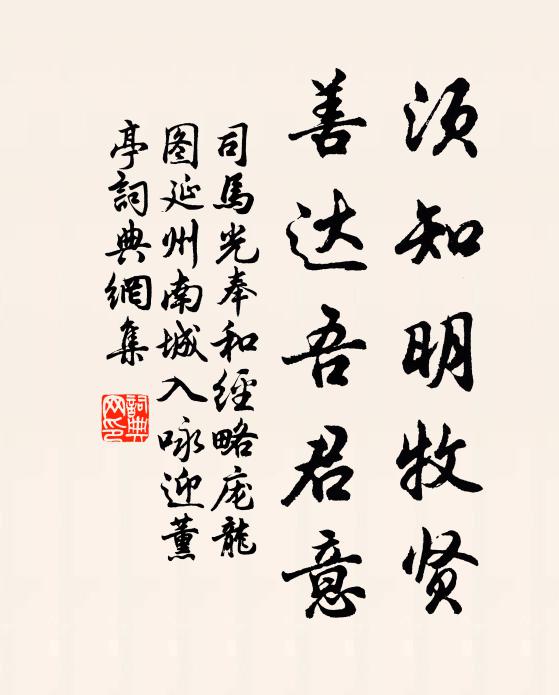 须知明牧贤
善达吾君意
司馬光奉和經略庞龍
图延州南城入咏迎薰
亭詞典網集
詞典
网印